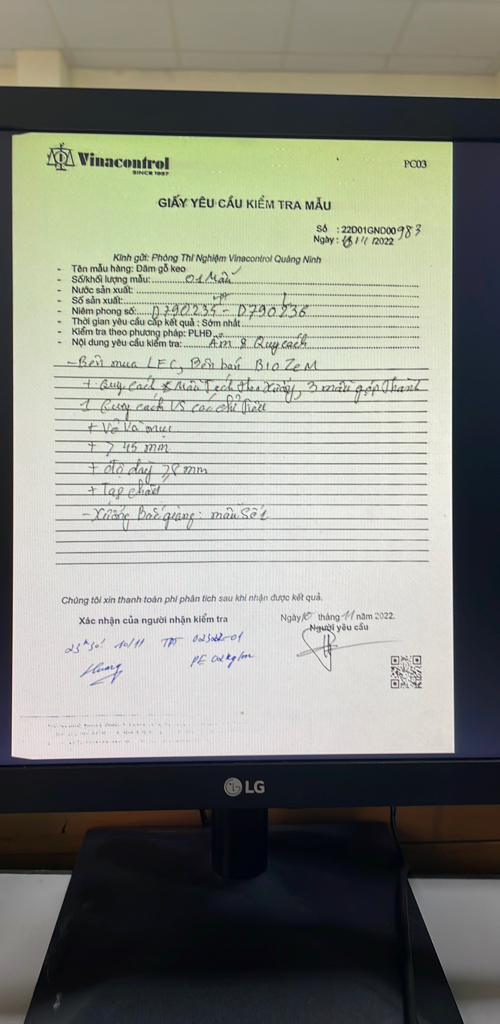 Vinacontrol
SINCE 1957
PC03
GIẤY YÊU CẦU KIỂM TRA MẪU
Số : 22D01GND00983
Ngày: 10/11/2022
Kính gửi: Phòng Thí Nghiệm Vinacontrol Quảng Ninh
- Tên mẫu hàng: Dăm gỗ keo
- Số/khối lượng mẫu: 01 Mẫu
- Nước sản xuất:
- Số sản xuất:
- Niêm phong số: D790235 - D790236
- Thời gian yêu cầu cấp kết quả : Sớm nhất
- Kiểm tra theo phương pháp: PLHĐ
- Nội dung yêu cầu kiểm tra: Ẩm & Quy cách
- Bên mua LFC, Bên bán BIOZEM
+ Quy cách Mẫu Tách theo xưởng, 3 mẫu gộp thành
1 Quy cách VS các chỉ tiêu
+ Vỏ và mục
+ > 45 mm
+ độ dày ≥8 mm
+ Tạp chất
- Xưởng Bắc giang: mẫu số 1
Chúng tôi xin thanh toán phí phân tích sau khi nhận được kết quả.
Xác nhận của người nhận kiểm tra
Ngày 10 tháng 11 năm 2022.
Người yêu cầu
10/11
PE 02kg/m
LG